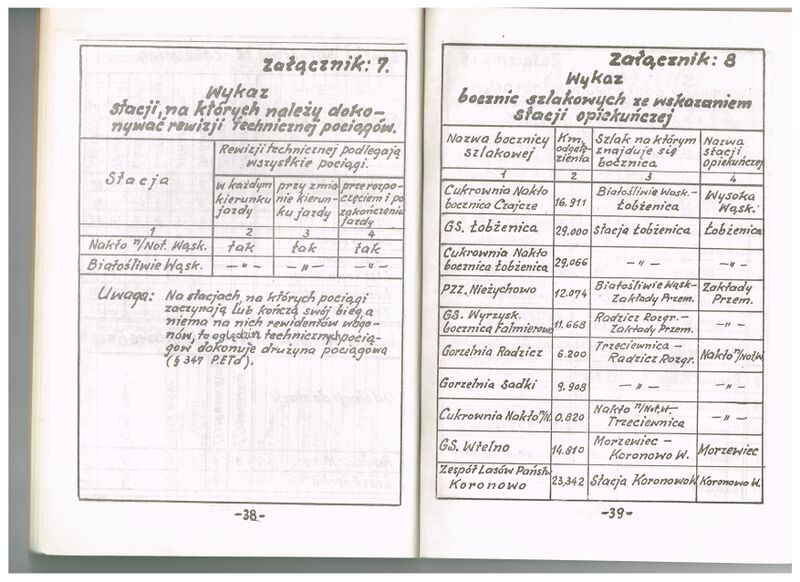 Załącznik: 7.
Wykaz
stacji, na których należy doko-
nywać rewizji technicznej pociągów.
Stacja
Rewizji technicznej podlegają
wszystkie pociągi.
w każdym
kierunku
jazdy
przy zmia
nie kierun-
ku jazdy
przed rozpo-
częciem i po
zakończeniu
jazdy
1 2 3 4
Nakło n/Not. Wąsk. tak tak tak
Białośliwie Wąsk. —"— —"— —"—
Uwaga: Na stacjach, na których pociągi
zaczynają lub kończą swój bieg a
niema na nich rewidentów wago-
nów, to oględzin technicznych pocią-
gów dokonuje drużyna pociągowa
(§ 347 P.ETd).
-38-
Załącznik: 8
Wykaz
bocznic szlakowych ze wskazaniem
stacji opiekuńczej
Nazwa bocznicy
szlakowej
Km.
odgałę-
zienia
Szlak na którym
znajduje się
bocznica
Nazwa
stacji
opiekuńczej
1 2 3 4
Cukrownia Nakło
bocznica Czajcze
16.911
Białośliwie Wąsk.-
Łobżenica
Wysoka
Wąsk.
GS. Łobżenica 29.000 Stacja Łobżenica Łobżenica
Cukrownia Nakło
bocznica Łobżenica
29.066 —"— —"—
PZZ. Nieżychowo 12.074
Białośliwie Wąsk-
Zakłady Przem.
Zakłady
Przem.
GS. Wyrzysk.
bocznica Falmierowo
11.668
Radzicz Rozgr.-
Zakłady Przem.
—"—
Gorzelnia Radzicz 6.200
Trzeciewnica-
Radzicz Rozgr.
Nakło n/Not.W.
Gorzelnia Sadki 9.908 —"— —"—
Cukrownia Nakło n/N. 0,820
Nakło n/Not.W-
Trzeciewnica
—"—
GS. Wtelno 14.810
Morzewiec -
Koronowo W.
Morzewiec
Zespół Lasów Państw
Koronowo
23,342 Stacja Koronowo W. Koronowo W.
-39-